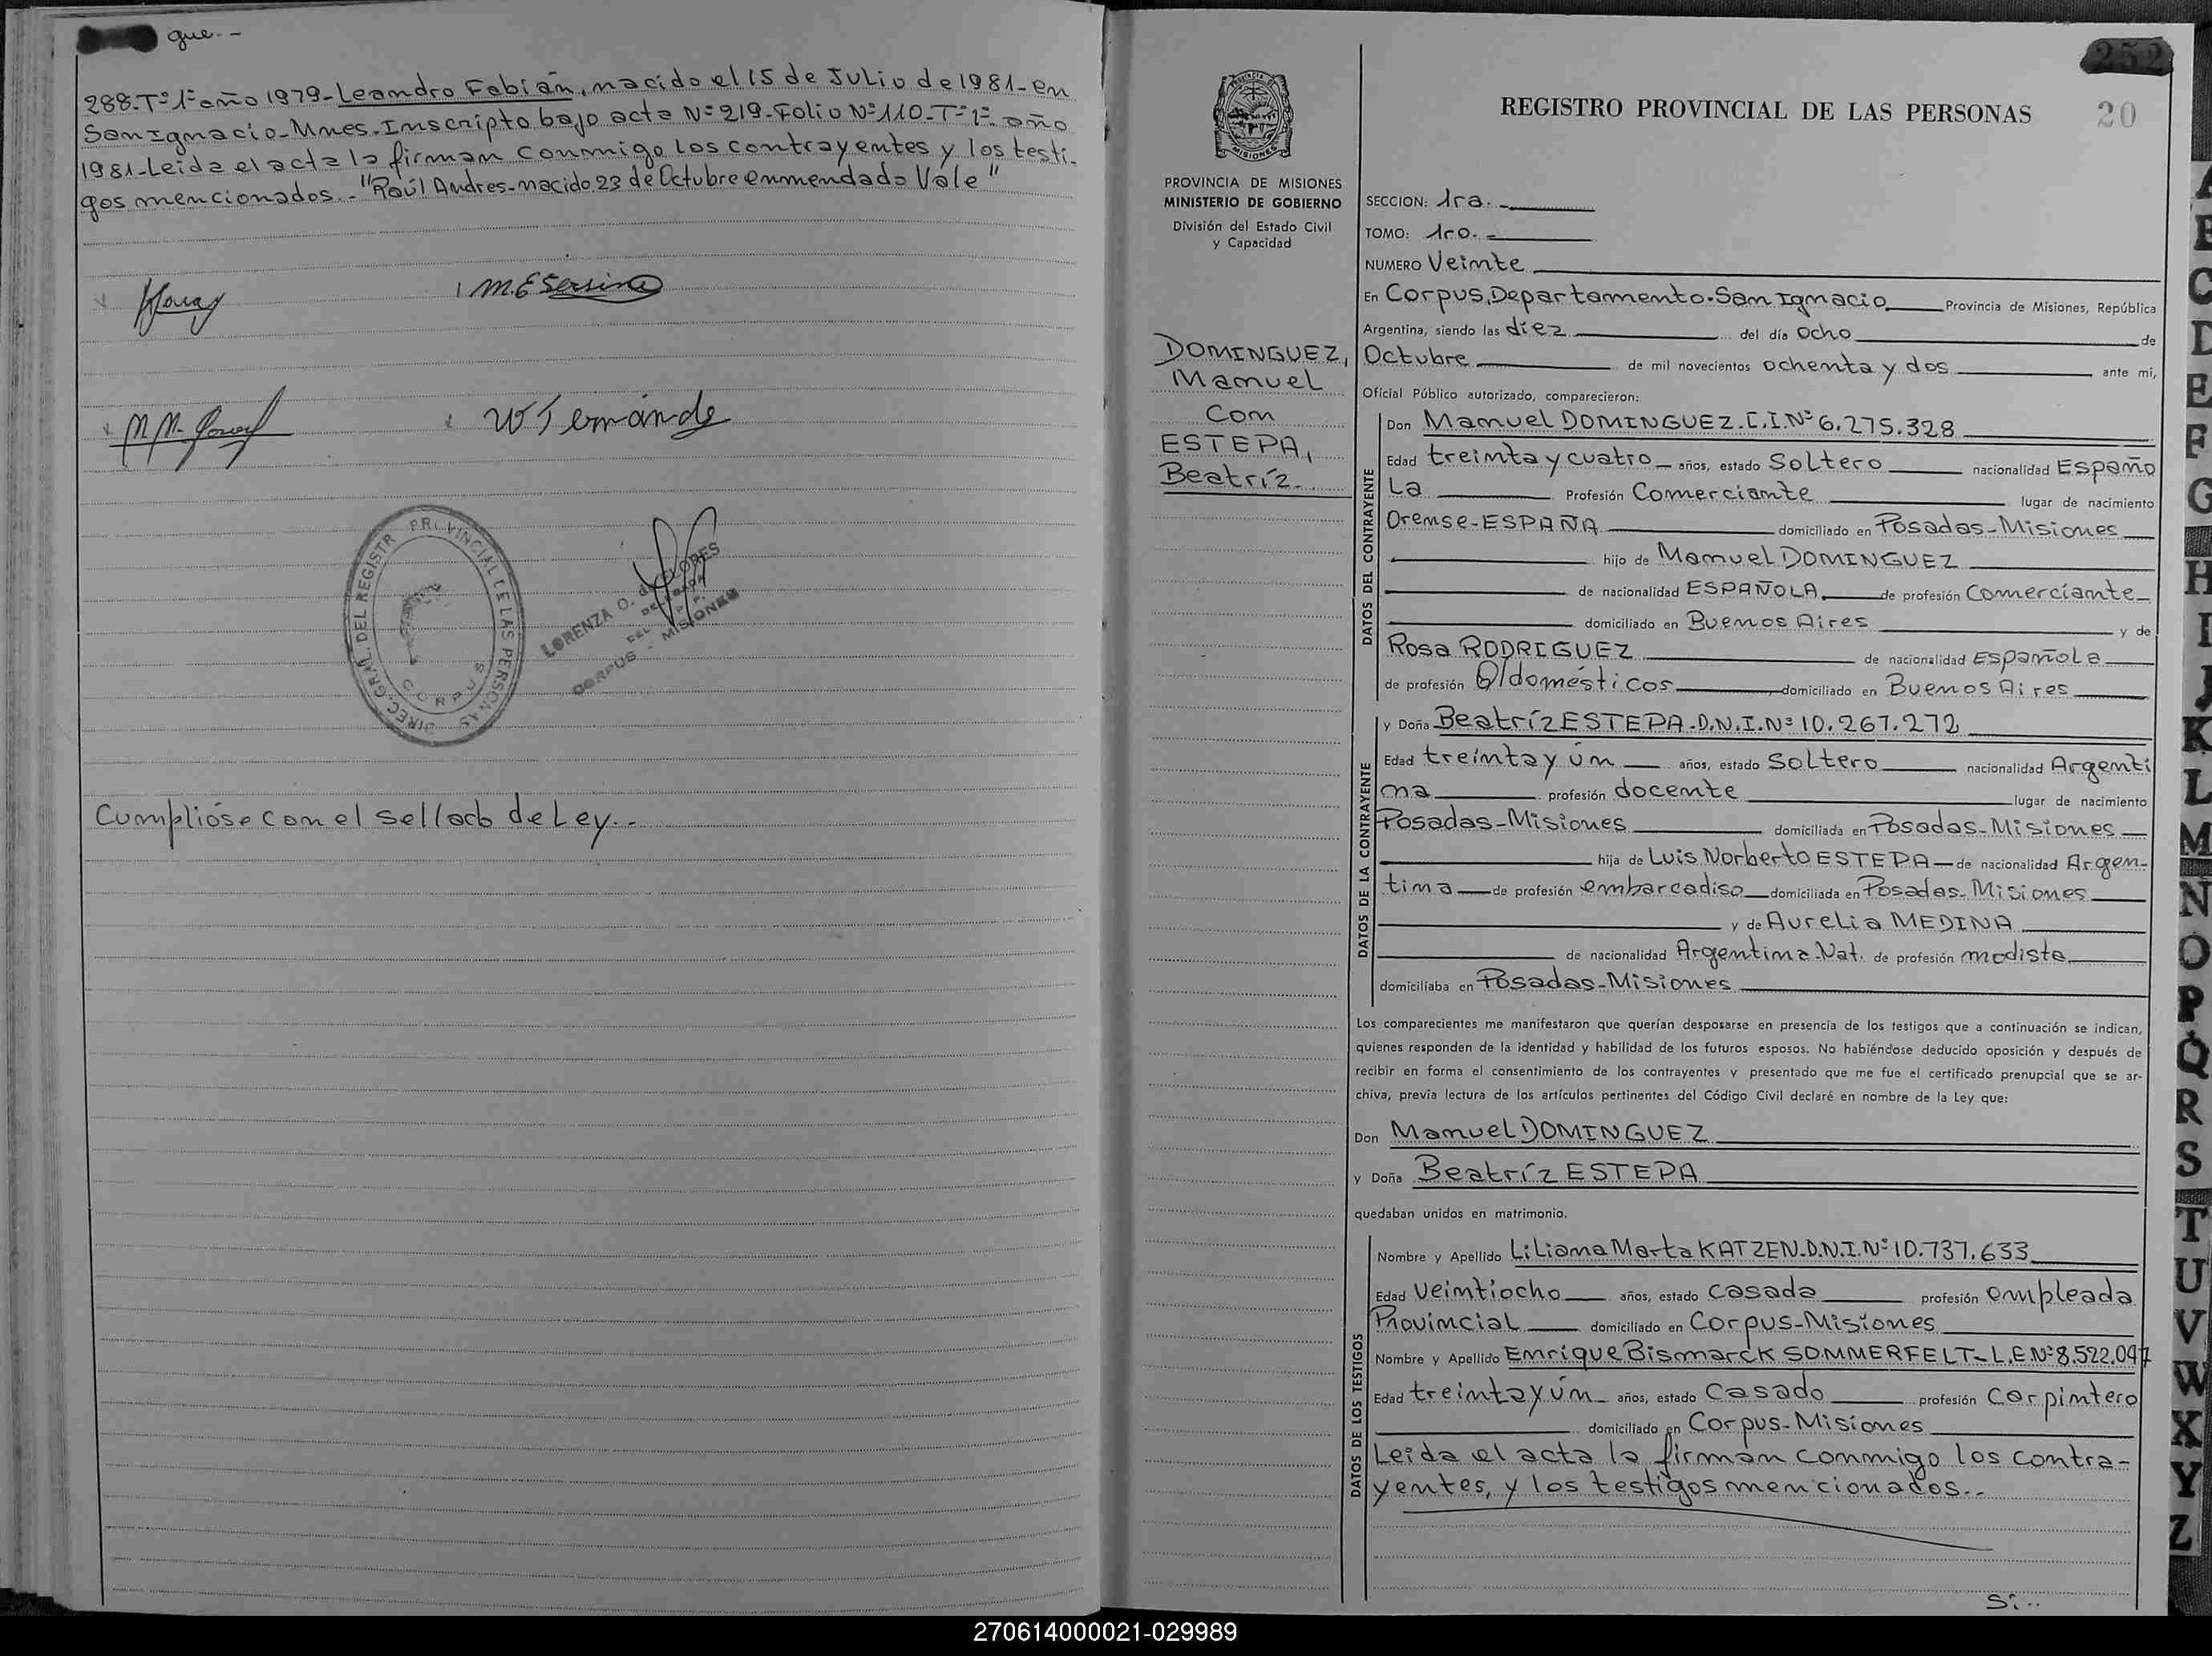 que.-
288.Tº1ºaño 1979-Leandro Fabián, nacido el 15 de Julio de 1981-en
San Ignacio-Mnes.Inscripto bajo acta Nº219-Folio Nº110-Tº1º año
1981-Leida el acta la firman conmigo los contrayentes y los testi-
gos mencionados.-"Raúl Andres-nacido 23 de Octubre enmendado Vale"
DIREC. GRAL. DEL REGISTR PROVINCIAL DE LAS PERSONAS
CORPUS
LORENZA O. de FLORES
CORPUS - MISIONES
Cumplióse con el sellado de Ley.-
252
20
REGISTRO PROVINCIAL DE LAS PERSONAS
PROVINCIA DE MISIONES
MINISTERIO DE GOBIERNO
División del Estado Civil
y Capacidad
SECCION: 1ra.-
TOMO: 1ro.-
NUMERO Veinte
En Corpus,Departamento.San Ignacio Provincia de Misiones, República
Argentina, siendo las diez del día ocho de
Octubre de mil novecientos ochenta y dos ante mi,
Oficial Público autorizado, comparecieron:
DOMINGUEZ,
Manuel
Con
ESTEPA,
Beatríz.
DATOS DEL CONTRAYENTE
Don Manuel DOMINGUEZ.C.I.Nº6.275.328
Edad treinta y cuatro años, estado Soltero nacionalidad Españo
la Profesión Comerciante lugar de nacimiento
Orense-ESPAÑA domiciliado en Posadas-Misiones
hijo de Manuel DOMINGUEZ
de nacionalidad ESPAÑOLA de profesión Comerciante
domiciliado en Buenos Aires y de
Rosa RODRIGUEZ de nacionalidad Española
de profesión Q/domésticos domiciliado en Buenos Aires
DATOS DE LA CONTRAYENTE
y Doña Beatríz ESTEPA-D.N.I.Nº10.267.272
Edad treinta y ún años, estado Soltero nacionalidad Argenti
na profesión docente lugar de nacimiento
Posadas-Misiones domiciliada en Posadas-Misiones
hija de Luis Norberto ESTEPA de nacionalidad Argen-
tina de profesión embarcadiso domiciliada en Posadas-Misiones
y de Aurelia MEDINA
de nacionalidad Argentina-Nat. de profesión modista
domiciliaba en Posadas-Misiones
Los comparecientes me manifestaron que querían desposarse en presencia de los testigos que a continuación se indican,
quienes responden de la identidad y habilidad de los futuros esposos. No habiéndose deducido oposición y después de
recibir en forma el consentimiento de los contrayentes y presentado que me fue el certificado prenupcial que se ar-
chiva, previa lectura de los artículos pertinentes del Código Civil declaré en nombre de la Ley que:
Don Manuel DOMINGUEZ
y Doña Beatríz ESTEPA
quedaban unidos en matrimonio.
DATOS DE LOS TESTIGOS
Nombre y Apellido Liliana Marta KATZEN-D.N.I.Nº10.737.633
Edad Veintiocho años, estado Casada profesión empleada
Provincial domiciliado en Corpus-Misiones
Nombre y Apellido Enrique Bismarck SOMMERFELT-L.E.Nº8.522.047
Edad treinta y ún años, estado Casado profesión Carpintero
domiciliado en Corpus-Misiones
Leida el acta la firman conmigo los contra-
yentes, y los testigos mencionados.-
Si..
A
B
C
D
E
F
G
H
I
J
K
L
M
N
O
P
Q
R
S
T
U
V
W
X
Y
Z
270614000021-029989